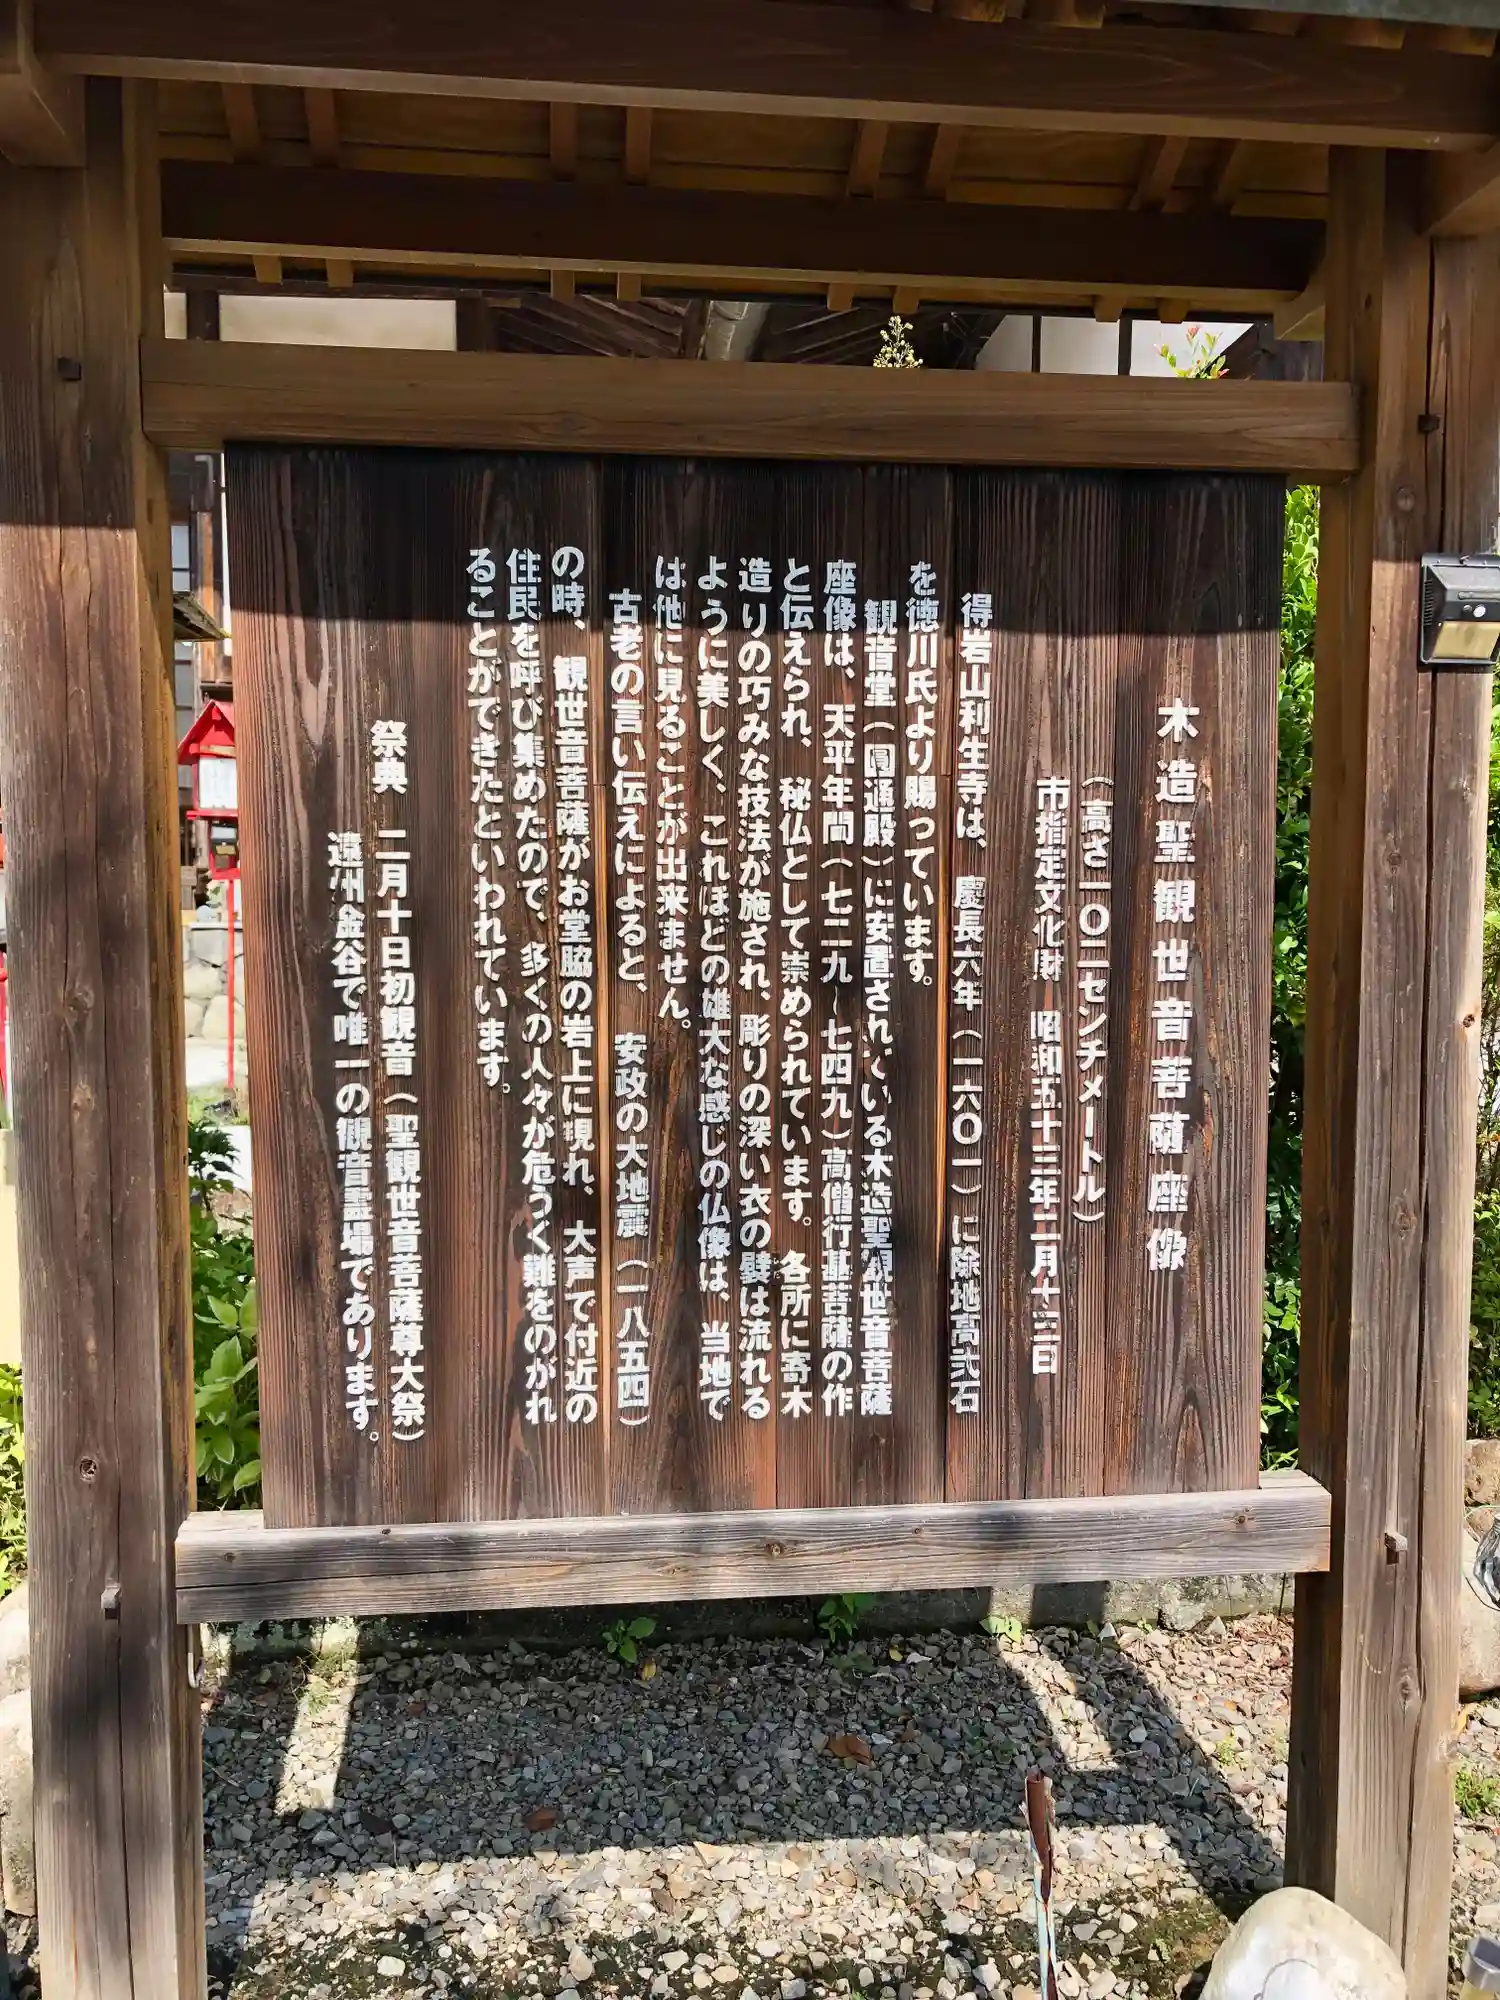 木造聖観世音菩薩座像
（高さ一〇二センチメートル）
市指定文化財　昭和五十三年二月十三日
得岩山利生寺は、慶長六年（一六〇一）に除地高弍石
を徳川氏より賜っています。
観音堂（圓通殿）に安置されている木造聖観世音菩薩
座像は、天平年間（七二九～七四九）高僧行基菩薩の作
と伝えられ、秘仏として崇められています。各所に寄木
造りの巧みな技法が施され、彫りの深い衣の襞は流れる
ように美しく、これほどの雄大な感じの仏像は、当地で
は他に見ることが出来ません。
古老の言い伝えによると、安政の大地震（一八五四）
の時、観世音菩薩がお堂脇の岩上に現れ、大声で付近の
住民を呼び集めたので、多くの人々が危うく難をのがれ
ることができたといわれています。
祭典　二月十日初観音（聖観世音菩薩尊大祭）
遠州金谷で唯一の観音霊場であります。